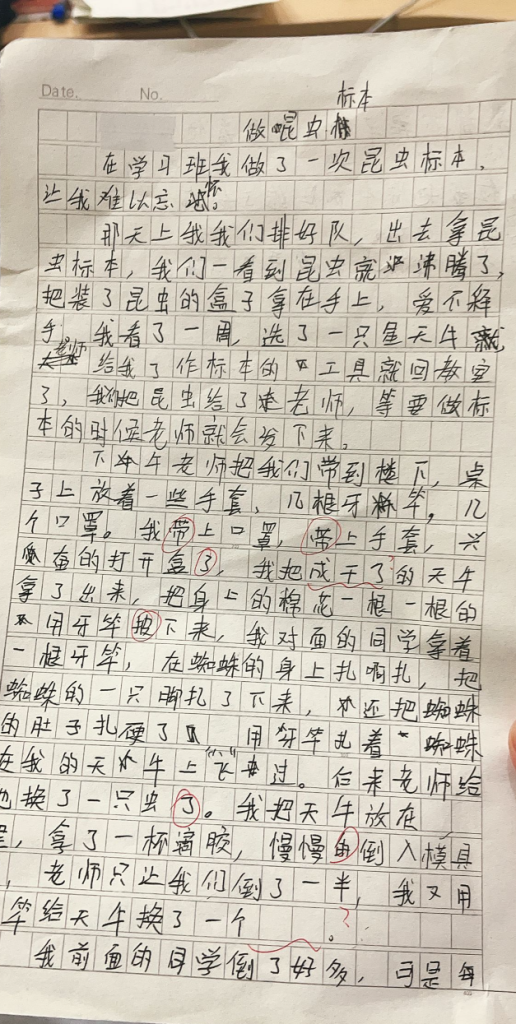 Date.
No.
标本
做昆虫
在学习班我做了一次昆虫标本，
让我难以忘怀。
那天上我我们排好队，出去拿昆
虫标本，我们一看到昆虫就沸腾了，
把装了昆虫的盒子拿在手上，爱不释
手，我看了一周，选了一只星天牛就
老师给我了作标本的工具就回教室
了，我们把昆虫给了老师，等要做标
本的时候老师就会发下来。
下午老师把我们带到楼下，桌
子上放着一些手套，几根牙竿，几
个口罩。我带上口罩，带上手套，兴
奋的打开盒了，我把成干了的天牛
拿了出来，把身上的棉花一根一根的
用牙竿按下来，我对面的同学拿着
一根牙竿，在蜘蛛的身上扎啊扎，把
蜘蛛的一只脚扎了下来，还把蜘蛛
的肚子扎硬了 用牙竿扎着蜘蛛
在我的天牛上“飞”过。后来老师给
他换了一只虫了。我把天牛放在
，拿了一杯滴胶，慢慢的倒入模具
，老师只让我们倒了一半，我又用
竿给天牛换了一个 。？
我前面的同学倒了好多，可是每